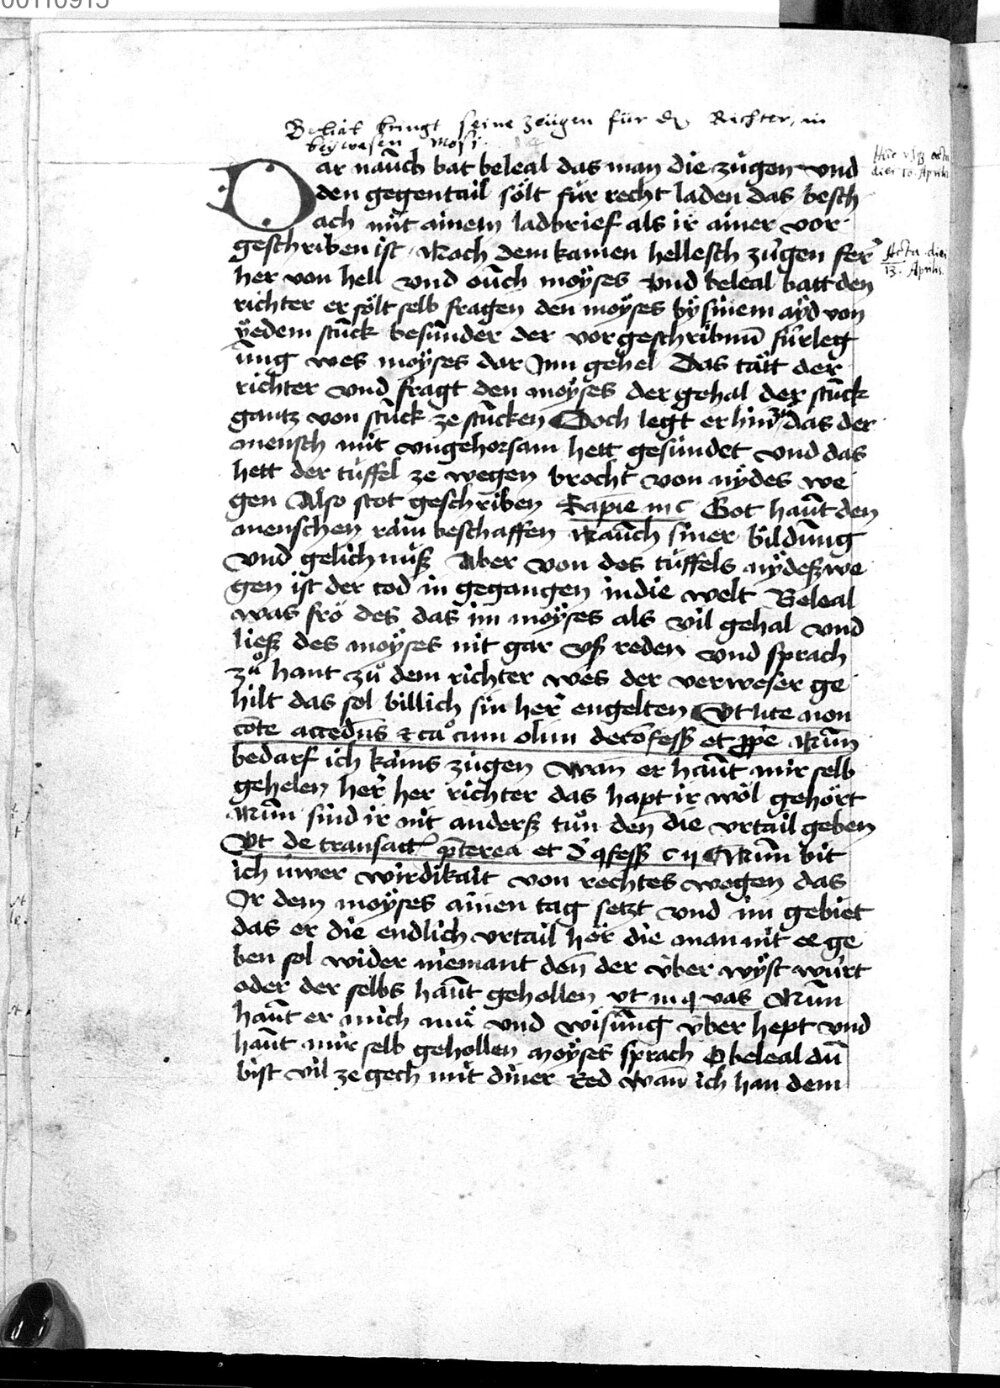 00110915
Belial bringt seine zeugen für dē Richter, in
beywesen Mosi.
Dar nauch bat beleal das man die zúgen vnd
den gegentail sölt für recht laden das besch
ach mit ainem ladbrief als ir ainer vor
geschriben ist Noch dem kamen hellesch zúgen fer
her von hell vnd ouch moyses vnd beleal batt den
richter er sölt selb fragen den moÿses bÿ sinem aÿd von
ÿedem stuck besunder der vorgeschribnn̄ fúrleg
ung wes moÿses dar Inn gehel Das tätt der
richter vnd fragt den moÿses der gehal der stuck
gantz von stuck ze stucken Doch legt er hin zů das der
mensch mit vngehorsam hett gesúndet vnd das
hett der túffel ze wegen brocht von nÿdes we
gen Also stot geschriben Sapie in c Got haut den
menschen rain beschaffen Nauch siner bildung
vnd gelichnúß Aber von des túffels nÿdeß we
gen ist der tod in gegangen in die welt Beleal
was fro des das im moÿses als vil gehal vnd
ließ des moÿses nit gar vß reden vnd sprach
zů hant zů dem richter wes der verweser ge
hilt das sol billich sin her engelten Vt lite non
cōte accedēs & ca° cum olim de cōfess et ꝓpe Nun
bedarf ich kains zúgen wan er haut mir selb
gehelen her her richter das hapt ir wol gehört
Nun sind ir nit anderß tůn den die vrtail geben
Vt de transact p̄terea et d ꝯfess c ij Nun bit
ich úwer wirdikait von rechtes wegen das
Ir dem moÿses ainen tag setzt vnd im gebiet
das er die endlich vrtail hör die man nit ee ge
ben sol wider niemant den der vber wÿst wúrt
oder der selbs haut gehollen vt in q vas Nun
haut er mich mú vnd wisung vber hept vnd
haut mir selb gehollen Moÿses sprach O beleal du
bist vil ze gech mit diner Red wan ich han dem
dies 10. Aprilis
Acta die
13. Aprilis.